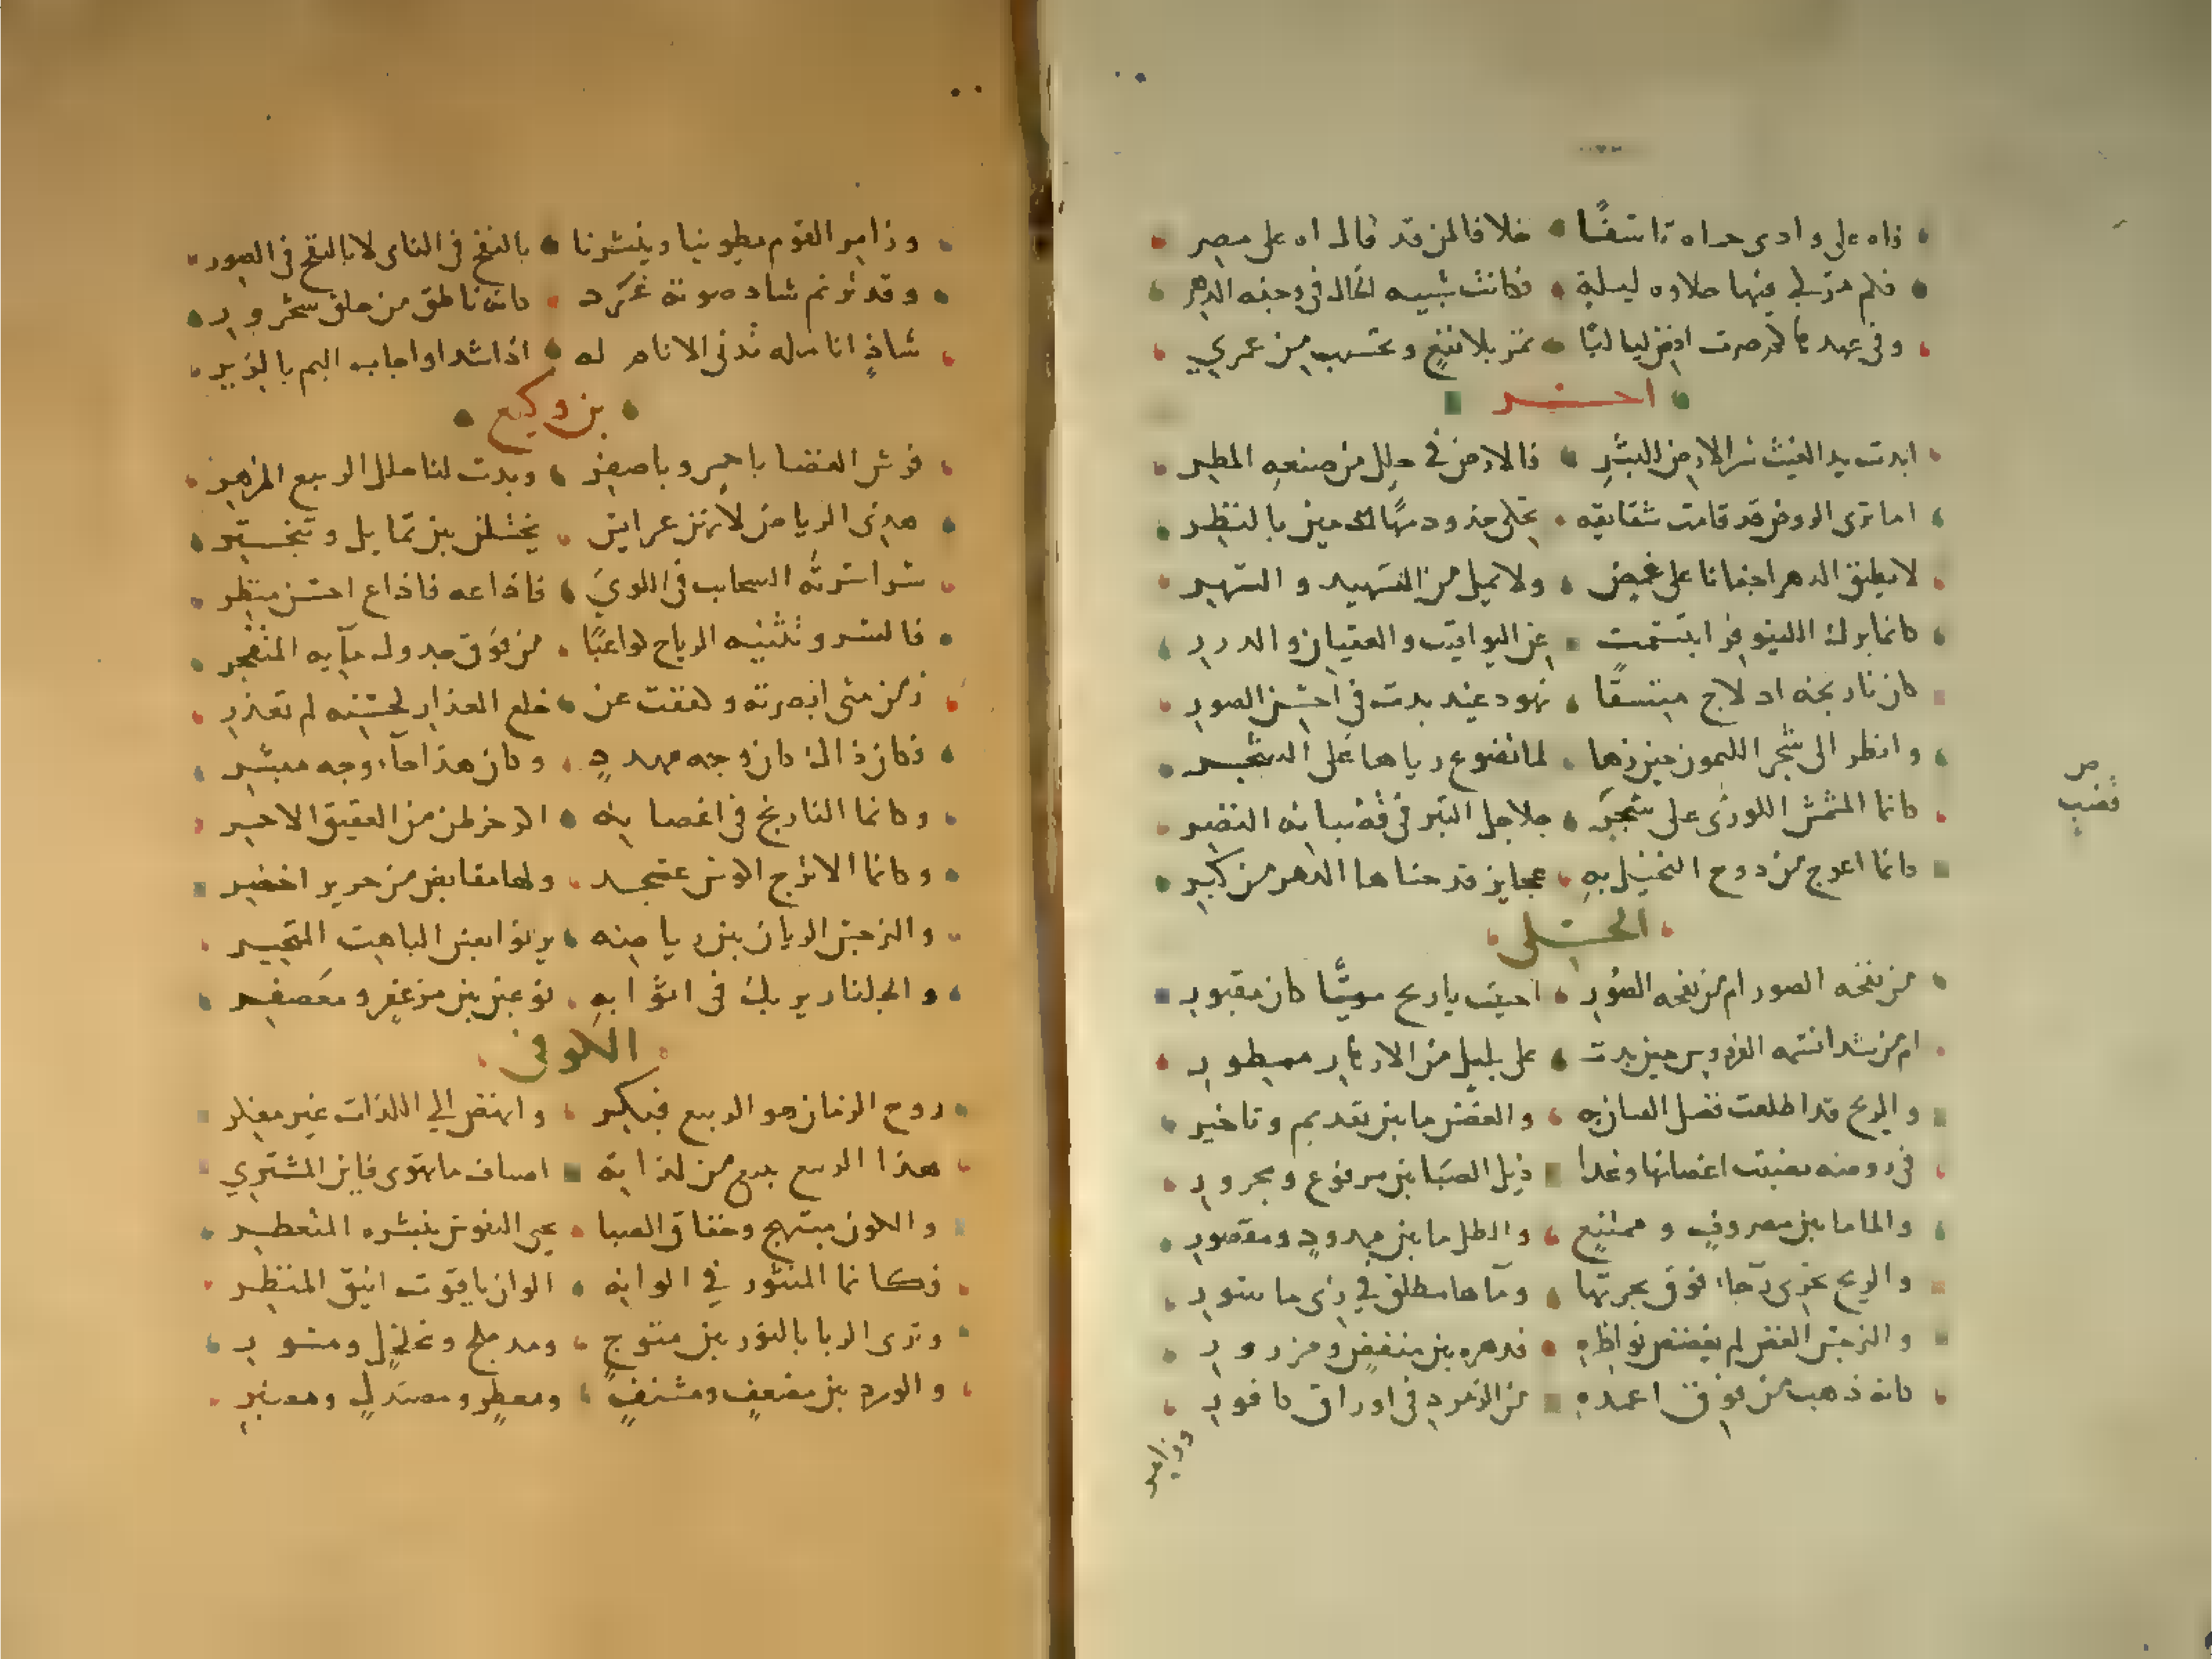 فاه على وادي حماه تاسفًا خلافا لمن قد قال اه على مصر
فلم تر لي فيها حلاوه ليلةٍ فكانت شبيه الخال في وجنه الدهر
وفي عهد صرت افض لياليًا تمر بلا نفعٍ وتحسب من عمري
اخر
ابدت يد الغيث سر الارض للبشر فالارض في حلل من صنعه المطر
اما ترى الروض قد قامت شقايقه تجلى خدود بالنظر
لا يطبق الدهر اجفانا على غمض ولا يميل من التسهيد والسهر
كانما برك اللينوفر ابتسمت عن اليواقيت والعقيان والدرر
كان نارنجه اذ لاح متسقًا نهود غيد بدت في احسن الصور
وانظر الى شجر الليمون حين زها لما تضوع رياها على الشجر
كانما المشمش اللوزي على شجر جلاجل التبر في قضبانه النضر
كانما اعوج من دوح النخيل به عجايز قد حناها الدهر من كبر
قضب
الحلي
من نفخه الصور ام من نفخه الصور احييت يا ريح ميتًا كان مقبور
ام من شذا نسمه الفردوس حين بدت على بليل من الازهار ممطور
والريح قد اطلقت فضل العنان به والغصن ما بين تقديم وتاخير
في روضه نصبت اغصانها وغدا ذيل الصبا بين مرفوع ومجرور
والما ما بين مصروف وممتنع والظل ما بين ممدود ومقصور
والريح تجري رخاء فوق بحرتها وماها مطلق في زي ماسور
والنرجس الغض لم يغضض نواظره فزهره بين منفض ومزرور
كانه ذهب من فوق اعمده من الزمرد في اوراق كافور
وزامر
وزامر القوم يطوينا وينشرنا بالنفخ في الناي لا بالنفخ في الصور
وقد ترنم شاد صوته غرد كانه ناطق من حلق شحرور
شاد انامله تدني الانام له اذا شدا واجاب البم بالزير
بن وكيع
فرش الفضا باحمر وباصفر وبدت لنا حلل الربيع المزهر
هذي الرياض كانهن عرايس يختلن بين تمايل وتبختر
سر اسرته السحاب في اللوي فاذاعه فاذاع احسن منظر
فالسرو تثنيه الرياح لواعبًا من فوق جدول مايه المتفجر
زمن متى ابصرته وهففت عن خلع العذار لحسنه لم تعذر
فكان ذالك كان وجه مهدد وكان هذا جاء وجه مبشر
وكانما النارنج في اغصانه اكر خرطن من العقيق الاحمر
وكانما الاترج اكوس عسجد ولها مقابض من حرير اخضر
والنرجس الريان بين رياضه يرنو بعين الباهت المتحير
والجلنار يريك في اثوابه نوعين بين مزعفر ومعصفر
الكوفي
روح الزمان هو الربيع فبكر وانهض الى اللذات غير معذر
هذا الربيع يبيع من لذاته اصناف ما تهوى فاين المشتري
والكون مبتهج وخفاق الصبا يحي النفوس بنشره المتعطر
فكانما المنثور في الوانه الوان ياقوت انيق المنظر
وترى الربا بالنور بين متوج ومدملج ومخلخل ومسور
والورد بين مضعف ومشنف ومعطر ومصندل ومعنبر